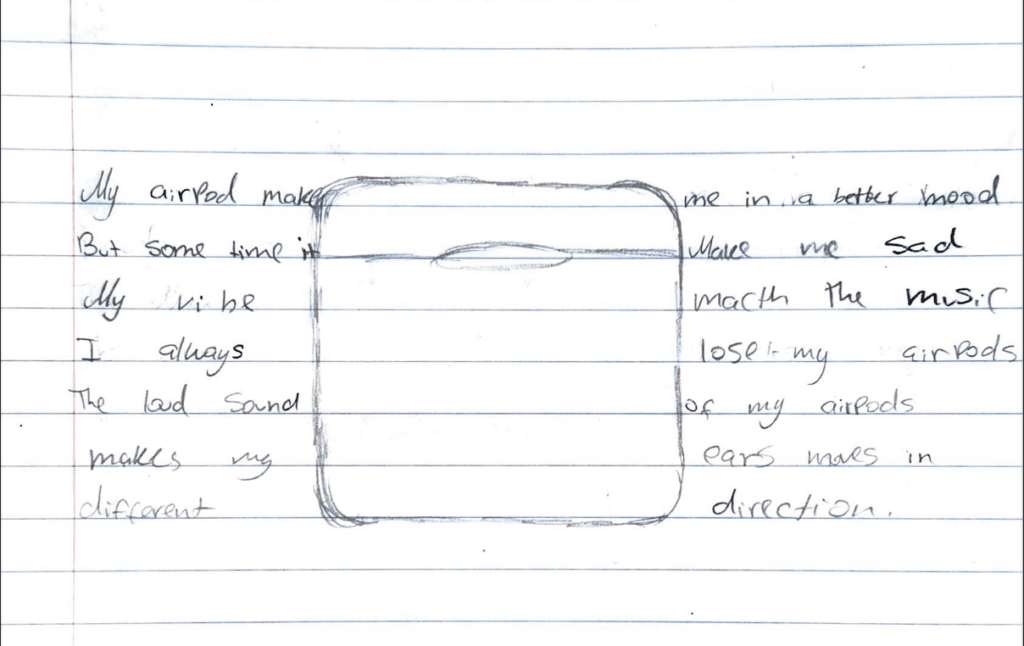 My airpod make me in a better mood
But some time it Make me sad
My vibe macth the music
I always lose my airpods
The loud sound of my airpods
makes my ears moves in
different direction.